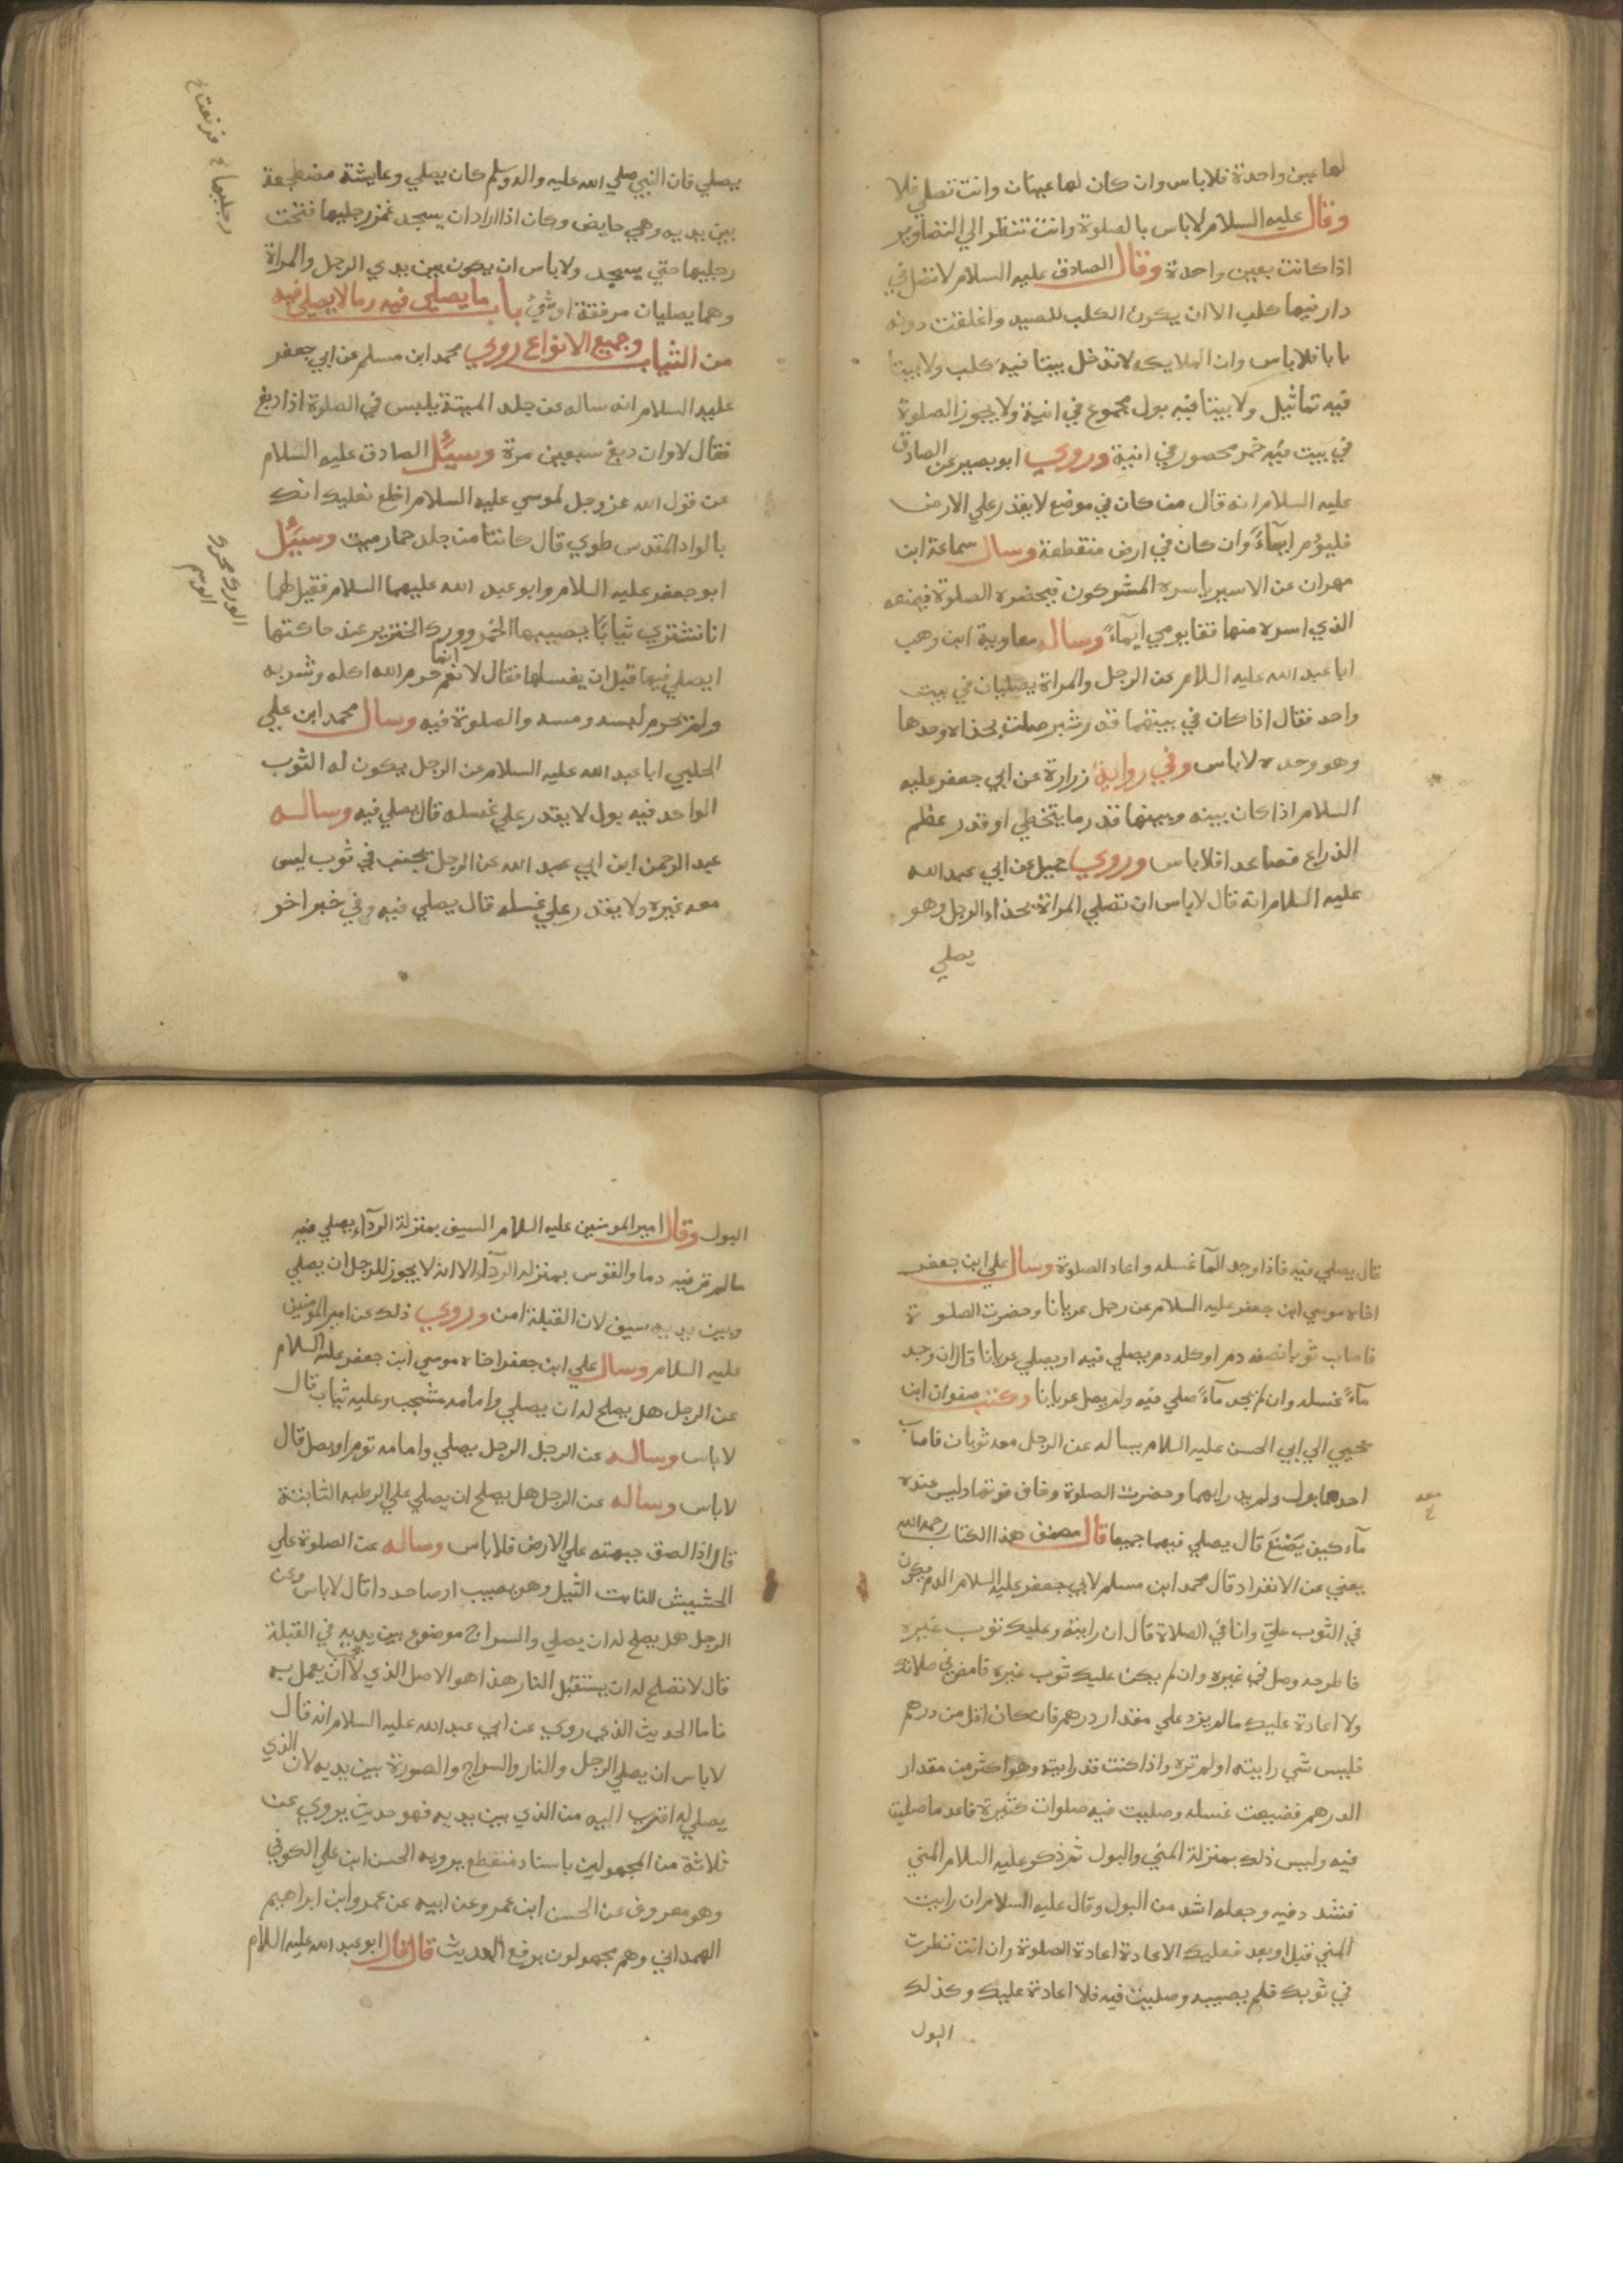 لها عين واحدة فلا باس وان كان لها عينان وانت تصلي فلا
وقال عليه السلام لا باس بالصلوة وانت تنظر الي التصاوير
اذا كانت بعين واحدة وقال الصادق عليه السلام لا تصل في
دار فيها كلب الا ان يكون الكلب للصيد واغلقت دونه
بابا فلا باس وان الملايكه لا تدخل بيتا فيه كلب ولا بيتا
فيه تماثيل ولا بيتا فيه بول مجموع في انية ولا يجوز الصلوة
في بيت فيه خمر محصور في انية وروي ابو بصير عن الصادق
عليه السلام انه قال من كان في موضع لا يقذر علي الارض
فليؤم ايمآءً وان كان في ارض منقطعة وسال سماعة ابن
مهران عن الاسير ياسره المشركون فيحضره الصلوة فيمنعه
الذي اسره منها فقا يومي ايمآءً وساله معاوية ابن وهب
ابا عبد الله عليه السلام عن الرجل والمراة يصليان في بيت
واحد فقال اذا كان في بينهما قدر شبر صلت بحذاه وحدها
وهو وحده لا باس وفي رواية زرارة عن ابي جعفر عليه
السلام اذا كان بينه وبينها قدر ما يتخطي او قدر عظم
الذراع فصاعدا فلا باس وروي جميل عن ابي عبد الله
عليه السلام انه قال لا باس ان تصلي المراة بحذاء الرجل وهو
يصلي
يصلي فان النبي صلي الله عليه واله وسلم كان يصلي وعايشة مضطجعة
بين يديه وهي حايض وكان اذا اراد ان يسجد غمز رجليها فنخت
رجليها حتي يسجد ولا باس ان يكون بين يدي الرجل والمراة
وهما يصليان مرفقة او شيْ باب ما يصلي فيه وما لا يصلي فيه
من الثياب وجميع الانواع روي محمد ابن مسلم عن ابي جعفر
عليه السلام انه ساله عن جلد الميتة يلبس في الصلوة اذا دبغ
فقال لا وان دبغ سبعين مرة وسيُل الصادق عليه السلام
عن قول الله عز وجل لموسي عليه السلام اخلع نعليك انك
بالواد المقدس طوي قال كانتا من جلد حمار ميت وسيُل
ابو جعفر عليه السلام وابو عبد الله عليهما السلام فقيل لهما
انا نشتري ثيابًا يصيبها الخمر وورك الخنزير عند حاكتها
ايصلي فيها قبل ان يغسلها فقال لا نعم انما حرم الله اكله وشربه
ولم يحرم لبسه ومسه والصلوة فيه وسال محمد ابن علي
الحلبي ابا عبد الله عليه السلام عن الرجل يكون له الثوب
الواحد فيه بول لا يقدر علي غسله قال يصلي فيه وساله
عبد الرحمن ابن ابي عبد الله عن الرجل يجنب في ثوب ليس
معه غيره ولا يقدر علي غسله قال يصلي فيه وفي خبر اخر
رجليها
قال يصلي فيه فاذا وجد المآ غسله واعاد الصلوة وسال علي ابن جعفر
اخاه موسي ابن جعفر عليه السلام عن رجل عريانا وحضرت الصلوة
فاصاب ثوبا نصفه دم او كله دم يصلي فيه او يصلي عريانا قال ان وجد
مآءً غسله وان لم يجد مآءً صلي فيه ولم يصل عريانا وكتب صفوان ابن
يحيي الي ابي الحسن عليه السلام يساله عن الرجل معه ثوبان فاصاب
احدهما بول ولم يدر ايهما وحضرت الصلوة وخاف فوتها وليس عنده
مآء كيف يصنع قال يصلي فيهما جميعا قال مصنف هذا الكتاب رحمه الله
يعني عن الانفراد قال محمد ابن مسلم لابي جعفر عليه السلام الدم يكون
في الثوب علي وانا في الصلاة قال ان رايته وعليك ثوب غيره
فاطرحه وصل في غيره وان لم يكن عليك ثوب غيره فامض في صلاتك
ولا اعادة عليك ما لم يزد علي مقدار درهم فان كان اقل من درهم
فليس شي رايته او لم تره واذا كنت قد رايته وهو اكثر من مقدار
الدرهم فضيعت غسله وصليت فيه صلوات كثيرة فاعد ما صليت
فيه وليس ذلك بمنزلة المني والبول ثم ذكر عليه السلام المني
فشدد فيه وجعله اشد من البول وقال عليه السلام ان رايت
المني قبل او بعد فعليك الاعادة اعادة الصلوة وان انت نظرت
في ثوبك فلم يصيبه وصليت فيه فلا اعادة عليك وكذلك
البول
معه
البول وقال امير المومنين عليه السلام السيف بمنزلة الردآء يصلي فيه
ما لم تر فيه دما والقوس بمنزله الردآء الا انه لا يجوز للرجل ان يصلي
وبين يديه سيف لان القبلة امن وروي ذلك عن امير المومنين
عليه السلام وسال علي ابن جعفر اخاه موسي ابن جعفر عليه السلام
عن الرجل هل يصلح له ان يصلي وامامه مشجب وعليه ثياب قال
لا باس وساله عن الرجل الرجل يصلي وامامه ثوم او بصل قال
لا باس وساله عن الرجل هل يصلح ان يصلي علي الرطبه الثابتة
قال اذا الصق جبهته علي الارض فلا باس وساله عن الصلوة علي
الحشيش النابت الثيل وهو يصيب ارضا جددا قال لا باس وعن
الرجل هل يصلح له ان يصلي والسراج موضوع بين يديه في القبلة
قال لا تصلح له ان يستقبل النار هذا هو الاصل الذي يجب لا ان يعمل به
فاما الحديث الذي روي عن ابي عبد الله عليه السلام انه قال
لا باس ان يصلي الرجل والنار والسراج والصورة بين يديه لان الذي
يصلي له اقرب اليه من الذي بين يديه فهو حديث يروي عن
ثلاثة من المجهولين باسناد منقطع يرويه الحسن ابن علي الكوفي
وهو معروف عن الحسن ابن عمرو عن ابيه عن عمرو ابن ابراهيم
الهمداني وهم مجهولون يرفع الحديث قال قال ابو عبد الله عليه السلام